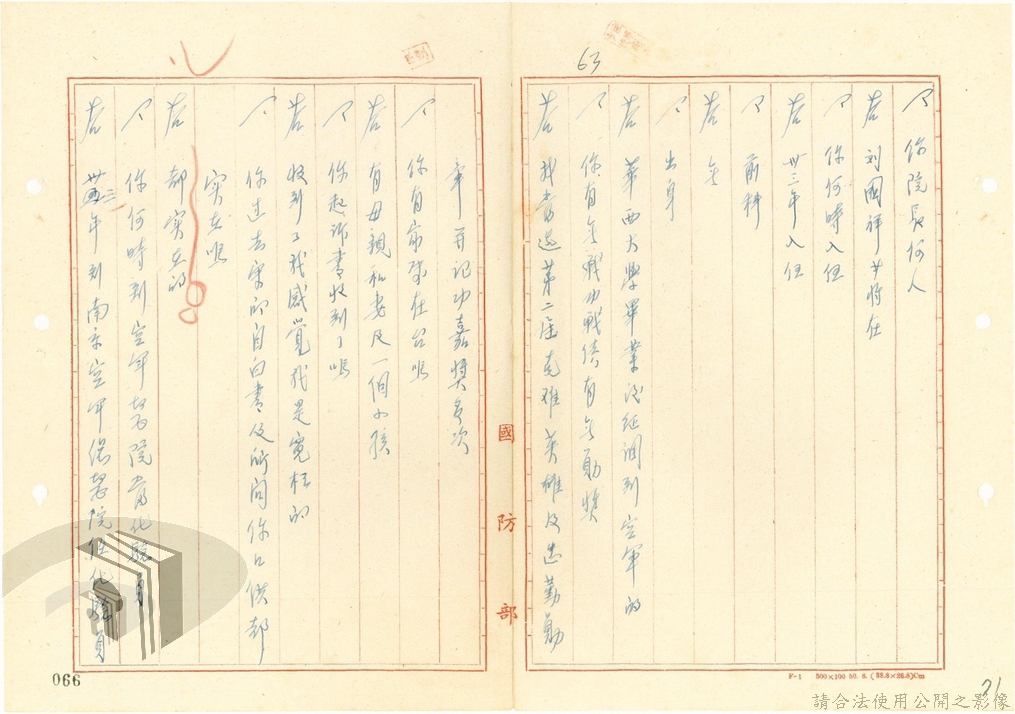 63
問 你院長何人
答 刘國祥少將任
問 你何時入伍
答 卅三年入伍
問 前科
答 無
問 出身
答 華西大學畢業後經調到空軍的
問 你有無戰功戰績有無勛獎
答 我當選第二屆克难英雄及忠勤勛
章并記功嘉獎多次
問 你有家屬在台嗎
答 有母親和妻及一個小孩
問 你起訴書收到了嗎
答 收到了我感覺我是寃枉的
問 你过去案卽自白書及所问你口供都
實在嗎
答 都實在的
問 你何時到空軍醫院當化驗員
答 卅三年到南京空軍總醫院任化驗員
國防部
F-1 500×100 50. 8. (38.8×26.8)Cm
066
21
請合法使用公開之影像